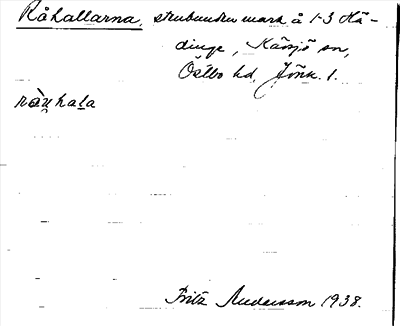 Råhallarna, stenbunden mark å 1-3 Hä-
dinge, Kävsjö sn,
Östbo hd, Jönk. l.
ràu̯hala
Fritz Andersson 1938.